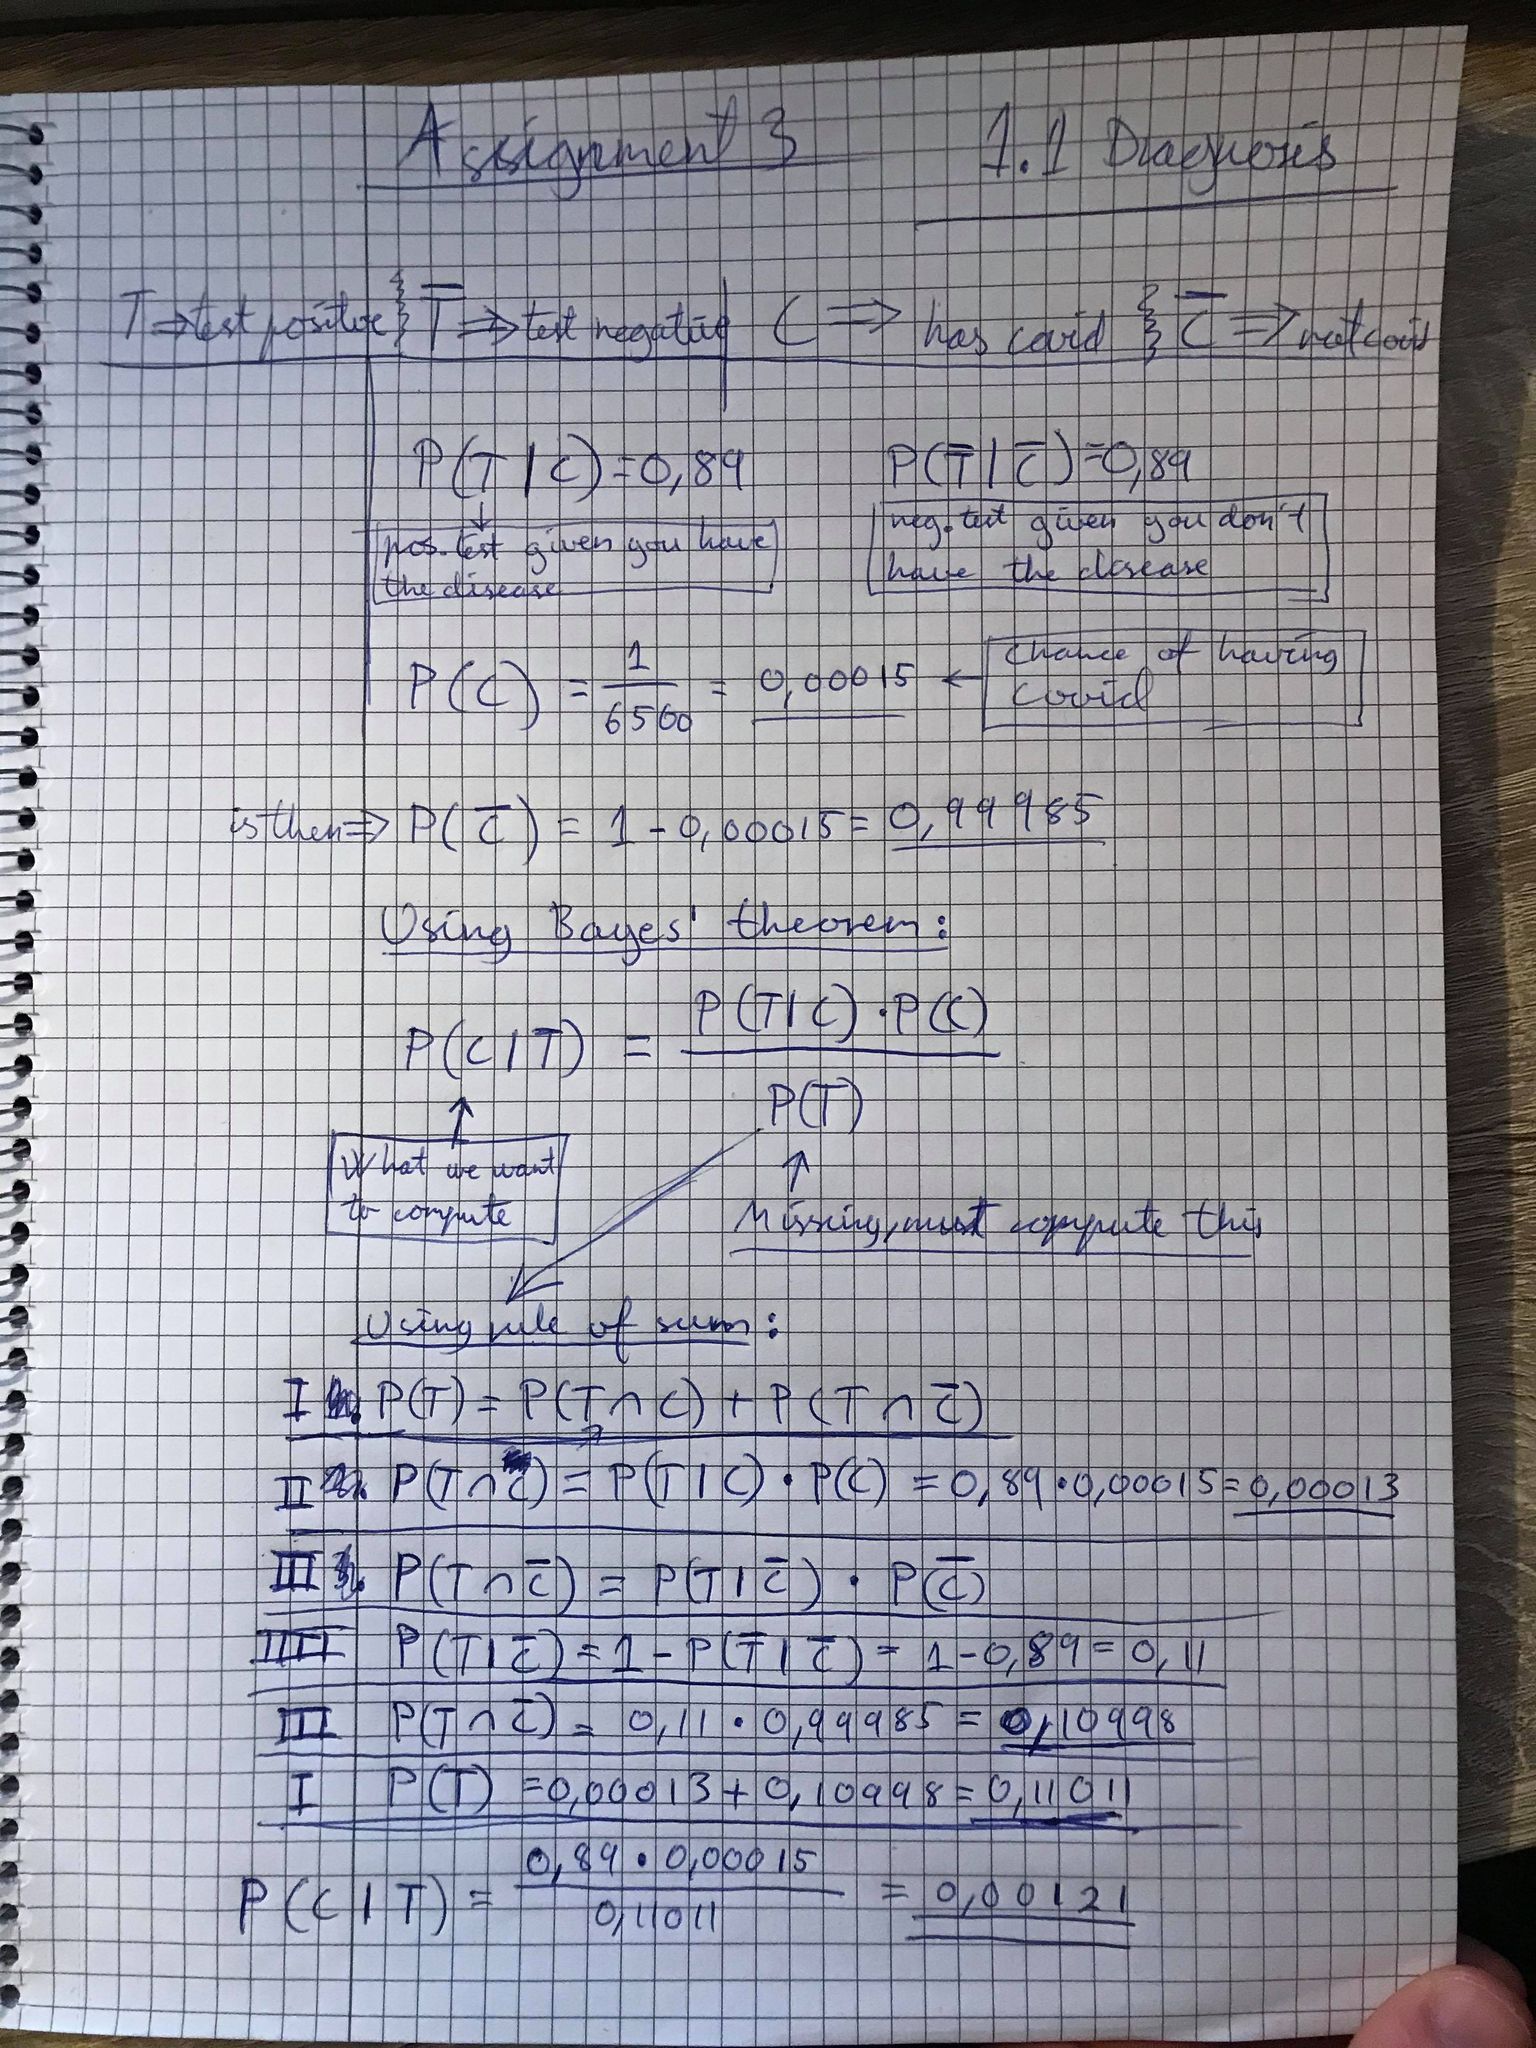 Assignment 3 1.1 Diagnosis
T ⇒ test positive } T̅ ⇒ test negative | C ⇒ has covid } C̅ ⇒ not covid
P(T|C)=0,89 P(T̅|C̅)=0,89
pos. test given you have
the disease
neg. test given you don't
have the disease
P(C) = 1/6500 = 0,00015 ← chance of having
covid
is then ⇒ P(C̅) = 1 - 0,00015 = 0,99985
Using Bayes' theorem:
P(C|T) = P(T|C) · P(C) / P(T)
What we want
to compute
Missing, must compute this
Using rule of sum:
I . P(T) = P(T∩C) + P(T∩C̅)
II . P(T∩C) = P(T|C) · P(C) = 0,89 · 0,00015 = 0,00013
III . P(T∩C̅) = P(T|C̅) · P(C̅)
IIII P(T|C̅) = 1 - P(T̅|C̅) = 1 - 0,89 = 0,11
III P(T∩C̅) = 0,11 · 0,99985 = 0,10998
I P(T) = 0,00013 + 0,10998 = 0,11011
P(C|T) = 0,89 · 0,00015 / 0,11011 = 0,00121